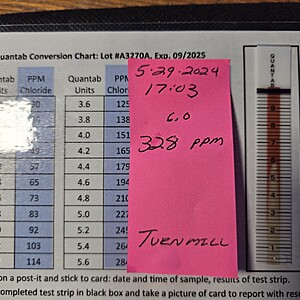 uantab Conversion Chart: Lot #A3270A, Exp. 09/2025
PPM Quantab PPM
Units Chloride Units
30 3.6 125
38 3.8 138
40 4.0 151
49 4.2 165
57 4.4 179
65 4.6 194
73 4.8 210
83 5.0 227
92 5.2 245
103 5.4 264
114 5.6
5-29-2024
17:03
6.0
328 PPM
TURNMILL
QUANTAB
9
8
7
6
5
4
3
2
1
on a post-it and stick to card: date and time of sample, results of test strip.
ompleted test strip in black box and take a picture of card to report with res